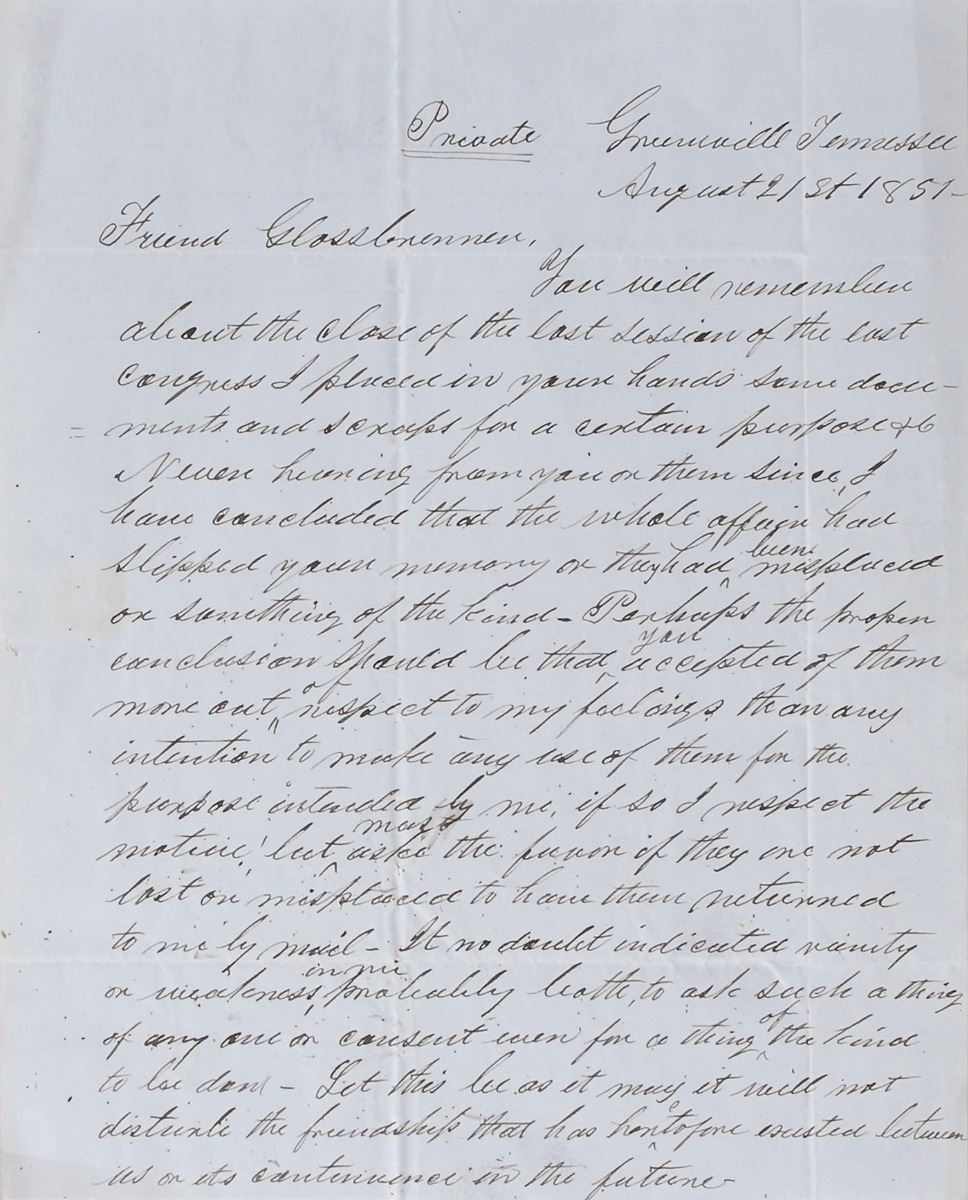 Private Greenville Tennessee
August 21st 1851-
Friend Glossbrenner,
You will remember
about the close of the last session of the last
Congress I placed in your hands some docu-
ments and scraps for a certain purpose &c
Never hearing from you or them since, I
have concluded that the whole affair had
slipped your memory or they had been misplaced
or something of the kind - Perhaps the proper
conclusion should be that you accepted of them
more out of respect to my feelings than any
intention to make any use of them for the
purpose intended by me, if so I respect the
motive, but must ask the favor if they are not
lost or misplaced to have them returned
to me by mail - It no doubt indicated vanity
or weakness in me, probably both, to ask such a thing
of any one or consent even for a thing of the kind
to be don - Let this be as it may it will not
disturb the friendship that has heretofore existed between
us or its continuence in the future-